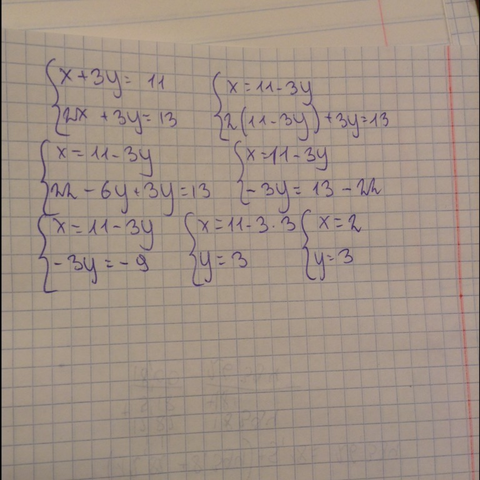 x + 3y = 11
2x + 3y = 13
x = 11 - 3y
2(11 - 3y) + 3y = 13
x = 11 - 3y
22 - 6y + 3y = 13
x = 11 - 3y
-3y = 13 - 22
x = 11 - 3y
-3y = -9
x = 11 - 3 · 3
y = 3
x = 2
y = 3